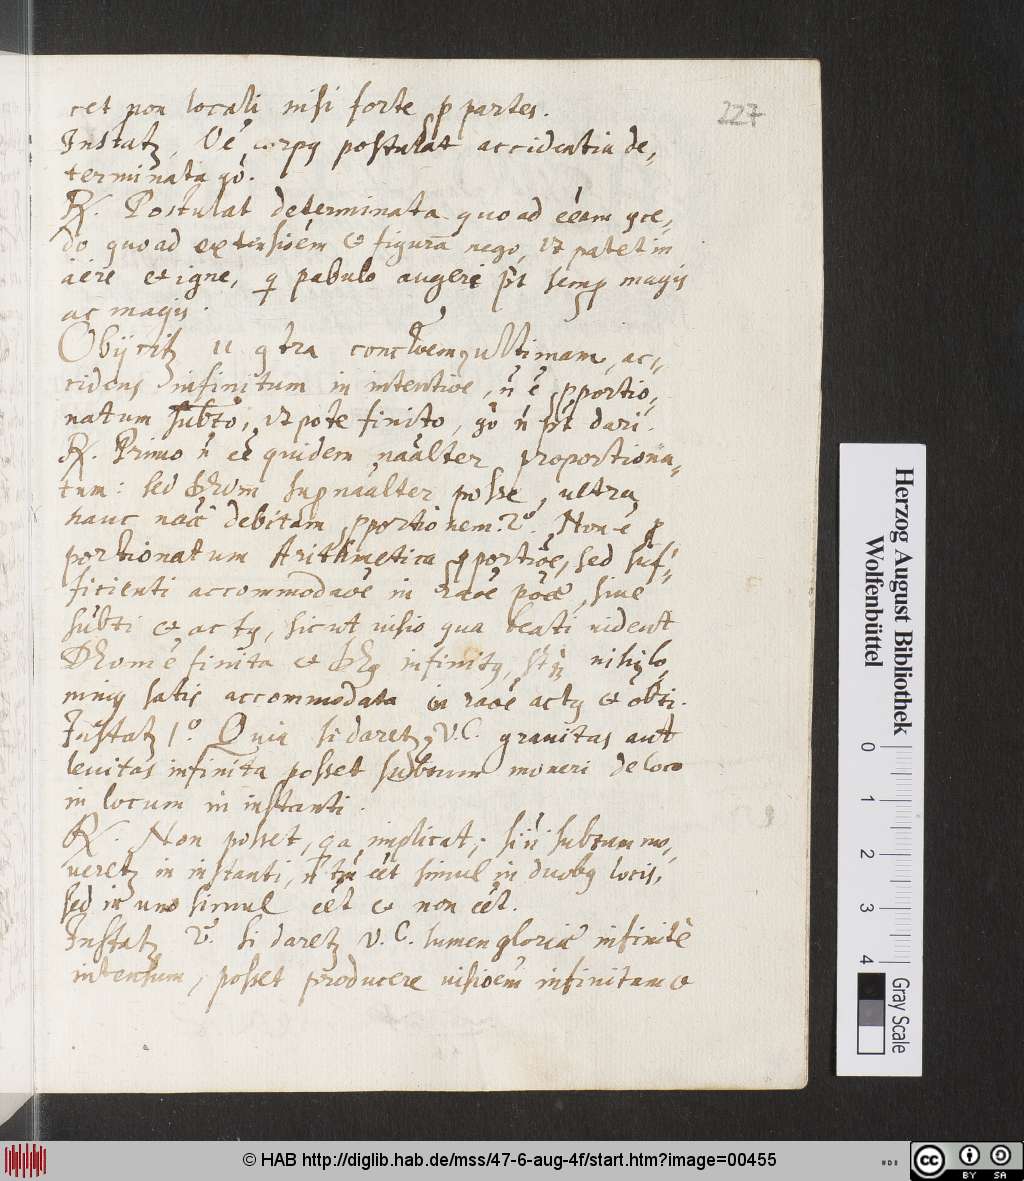 cet non locali nisi forte p partes.
227
Instatz, Oē corpq postulat accidentia de,
terminata gō.
R. Postulat determinata quoad ēēam
do quoad extensioēm & figurā nego, ut patet in
aēre et igne, q pabulo augeri pt semp magis
ac magis.
Obijcitz 11 qtra ultimam, ac,,
cidens infinitum in intentioē, n̄ ē pportio,
natum subto, utpote finito, gō n̄ pt dari.
R. Primo n̄ eē quidem naālter proportiona,,
tum: sed supnaālter posse, ultra
hanc debitam pportionem. 2º. Non ē p
portionatum Arithmetica pportioē, sed suf,,
ficienti accommodaoē in raoē poāe, sive
subti & actq, sicut visio qua beati vident
ē finita & infinitq, nihilo,
minq satis accommodata in raoē actq & obti.
Instatz 1º. Quia si daretz V.C. gravitas aut
levitas infinita posset subtum moveri de loco
in locum in instanti.
R. Non posset, qa implicat; si n̄ subtum mo,
veretz in instanti, n̄ tn cēt simul in duobq locis,
sed in uno simul cēt & non cēt.
Instatz 2º. si daretz V.C. lumen gloriae infinitē
intensum, posset producere visioēm infinitam &
Herzog August Bibliothek
Wolfenbüttel
0 1 2 3 4
Gray Scale
© HAB http://diglib.hab.de/mss/47-6-aug-4f/start.htm?image=00455
cc BY SA